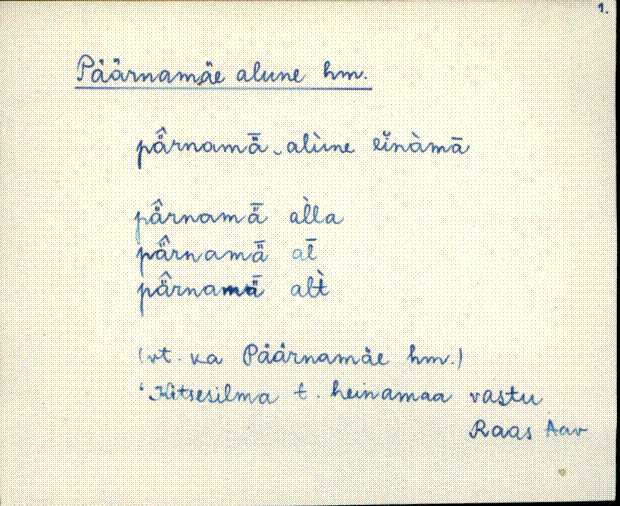 1.
Päärnamäe alune hm.
pä̂rnamǟ ‿alùne eĭnàmā
pä̂rnamǟ al̀la
pä̂rnamǟ al̄
pä̂rnamǟ alt̀
(vt. ka Päärnamäe hm.)
‘Kitsesilma t. heinamaa vastu
Raas Aav